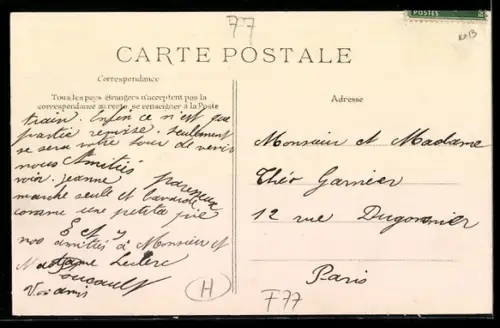 77
POSTES
CARTE POSTALE
Correspondance
Tous les pays étrangers n'acceptent pas la
correspondance au recto, se renseigner à la Poste
Adresse
train. Enfin ce n'est que
partie remise. Seulement
se sera votre tour de venir
nous Amitiés
voir. jeanne paresseux
marche seule et bavarde
comme une petite pie
nos amitiés à Monsieur et
Madame Leclerc
Foucault
Vos amis
Monsieur et Madame
Théo Garnier
12 rue Dugommier
Paris
H
F77